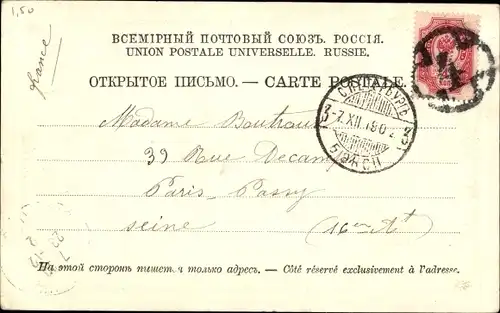 1,50
France
ВСЕМІРНЫЙ ПОЧТОВЫЙ СОЮЗЪ. РОССІЯ.
UNION POSTALE UNIVERSELLE. RUSSIE.
ОТКРЫТОЕ ПИСЬМО. — CARTE POSTALE.
С.ПЕТЕРБУРГЪ
7.XII.190
Madame Boutroux
39 Rue Decamps
Paris-Passy
Seine (16em At)
На этой сторонѣ пишется только адресъ. — Côté réservé exclusivement à l'adresse.